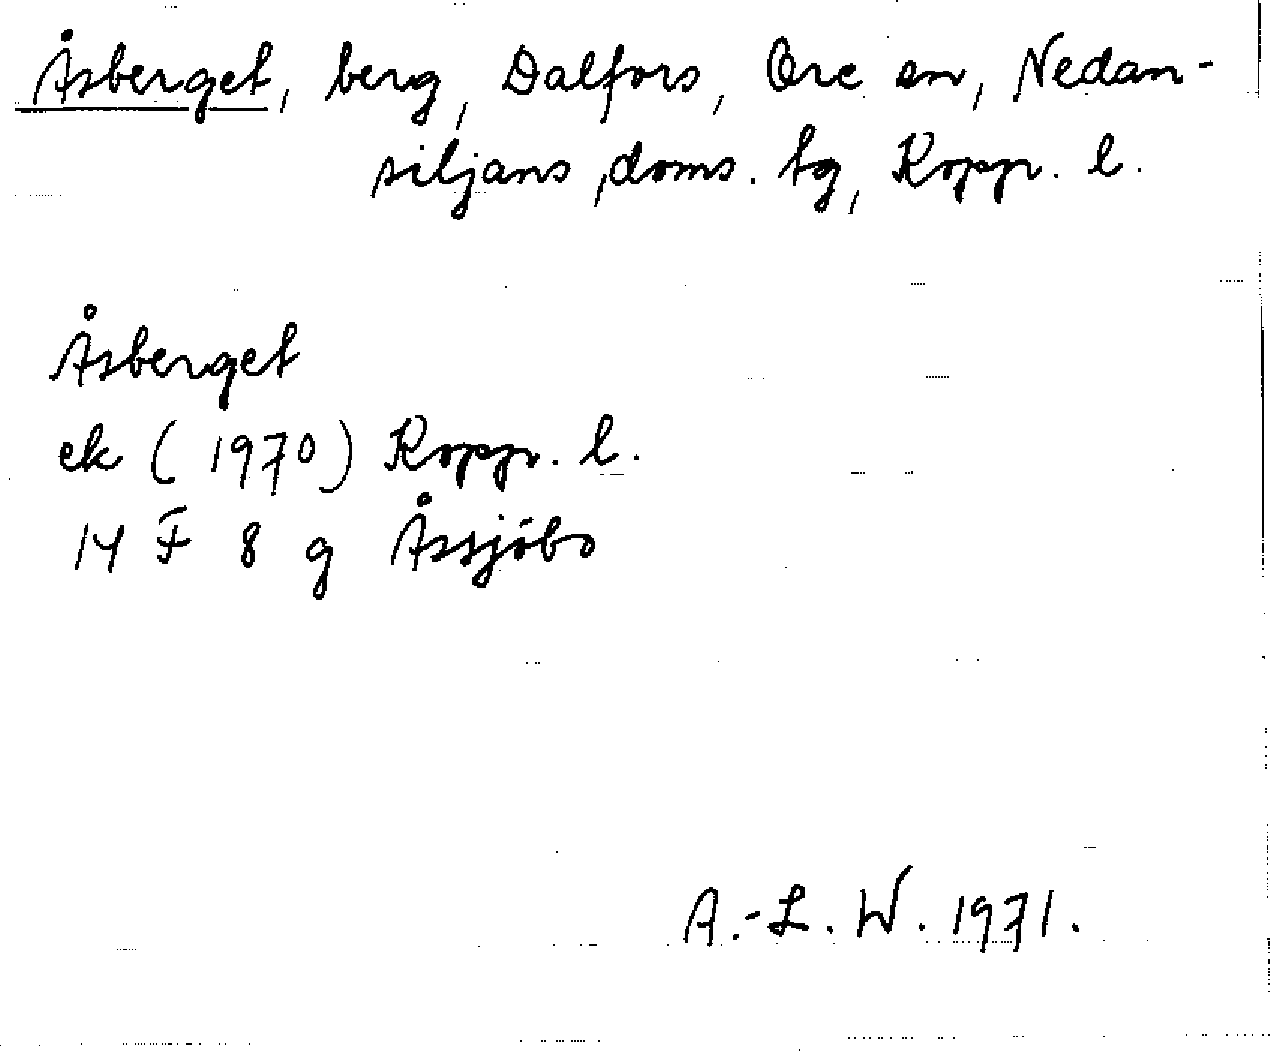 Åsberget, berg, Dalfors, Ore sn, Nedan-
siljans doms. tg, Kopp. l.
Åsberget
ek (1970) Kopp. l.
14 F 8 g Åssjöbo
A.-L. W. 1971.